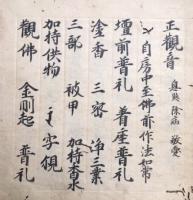 正觀音 息災 除病 敬愛
自房中至佛前作法如常
壇前普礼 着座普礼
塗香 三密 淨三業
三部 被甲 加持香水
加持供物 字觀
觀佛 金剛起 普礼